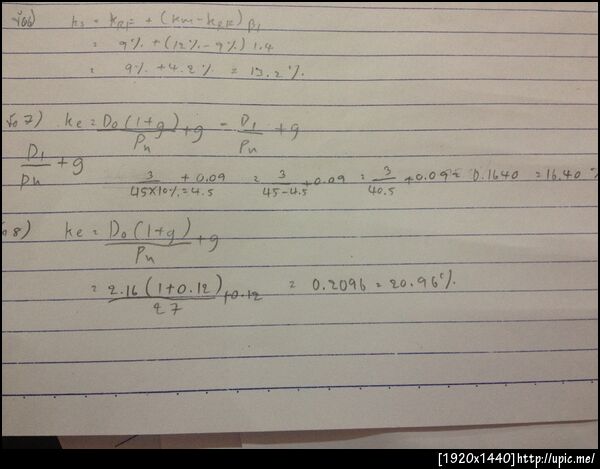 ข้อ6) ks = kRF + (km-kRF)β1
= 9% + (12% - 9%) 1.4
= 9% + 4.2% = 13.2%
ข้อ7) ke = D0(1+g)/Pn + g = D1/Pn + g
D1/Pn + g
3/45x10%=4.5 + 0.09 = 3/45-4.5 + 0.09 = 3/40.5 + 0.09 = 0.1640 = 16.40 %
ข้อ8) ke = D0(1+g)/Pn + g
= 2.16(1+0.12)/27 + 0.12 = 0.2096 = 20.96%
[1920x1440]http://upic.me/